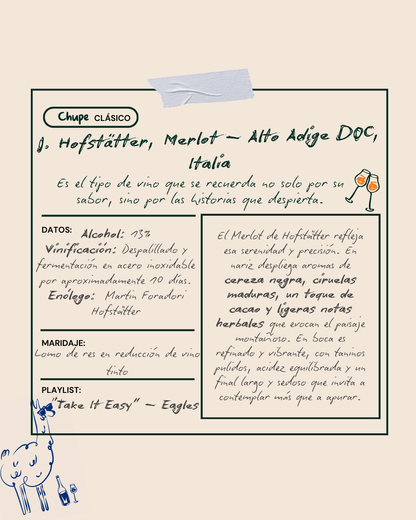 Chupe CLÁSICO
J. Hofstätter, Merlot – Alto Adige DOC,
Italia
Es el tipo de vino que se recuerda no solo por su
sabor, sino por las historias que despierta.
DATOS: Alcohol: 13%
Vinificación: Despalillado y
fermentación en acero inoxidable
por aproximadamente 10 días.
Enólogo: Martin Foradori
Hofstätter
MARIDAJE:
Lomo de res en reducción de vino
tinto
PLAYLIST:
"Take It Easy" – Eagles
El Merlot de Hofstätter refleja
esa serenidad y precisión. En
nariz despliega aromas de
cereza negra, ciruelas
maduras, un toque de
cacao y ligeras notas
herbales que evocan el paisaje
montañoso. En boca es
refinado y vibrante, con taninos
pulidos, acidez equilibrada y un
final largo y sedoso que invita a
contemplar más que a apurar.